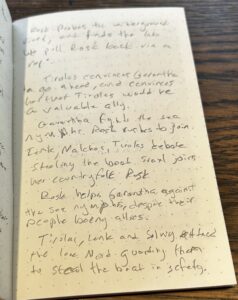 Rosk probes the underground
and finds the
We pull Rosk back via a
rope.
Tirolas convinces Garantha
to go ahead, and convinces
her that Tirolas would be
a valuable ally.
Garantha fights the sea
nymphs. Rosk rushes to join.
Ionk, Malchor, Tirolas debate
stealing the boat
her countryfolk Rosk
Rosk helps Garantha against
the sea nymphs, despite their
people being allies.
Tirolas, Ionk and attack
the lone guarding them
to steal the boat in safety.